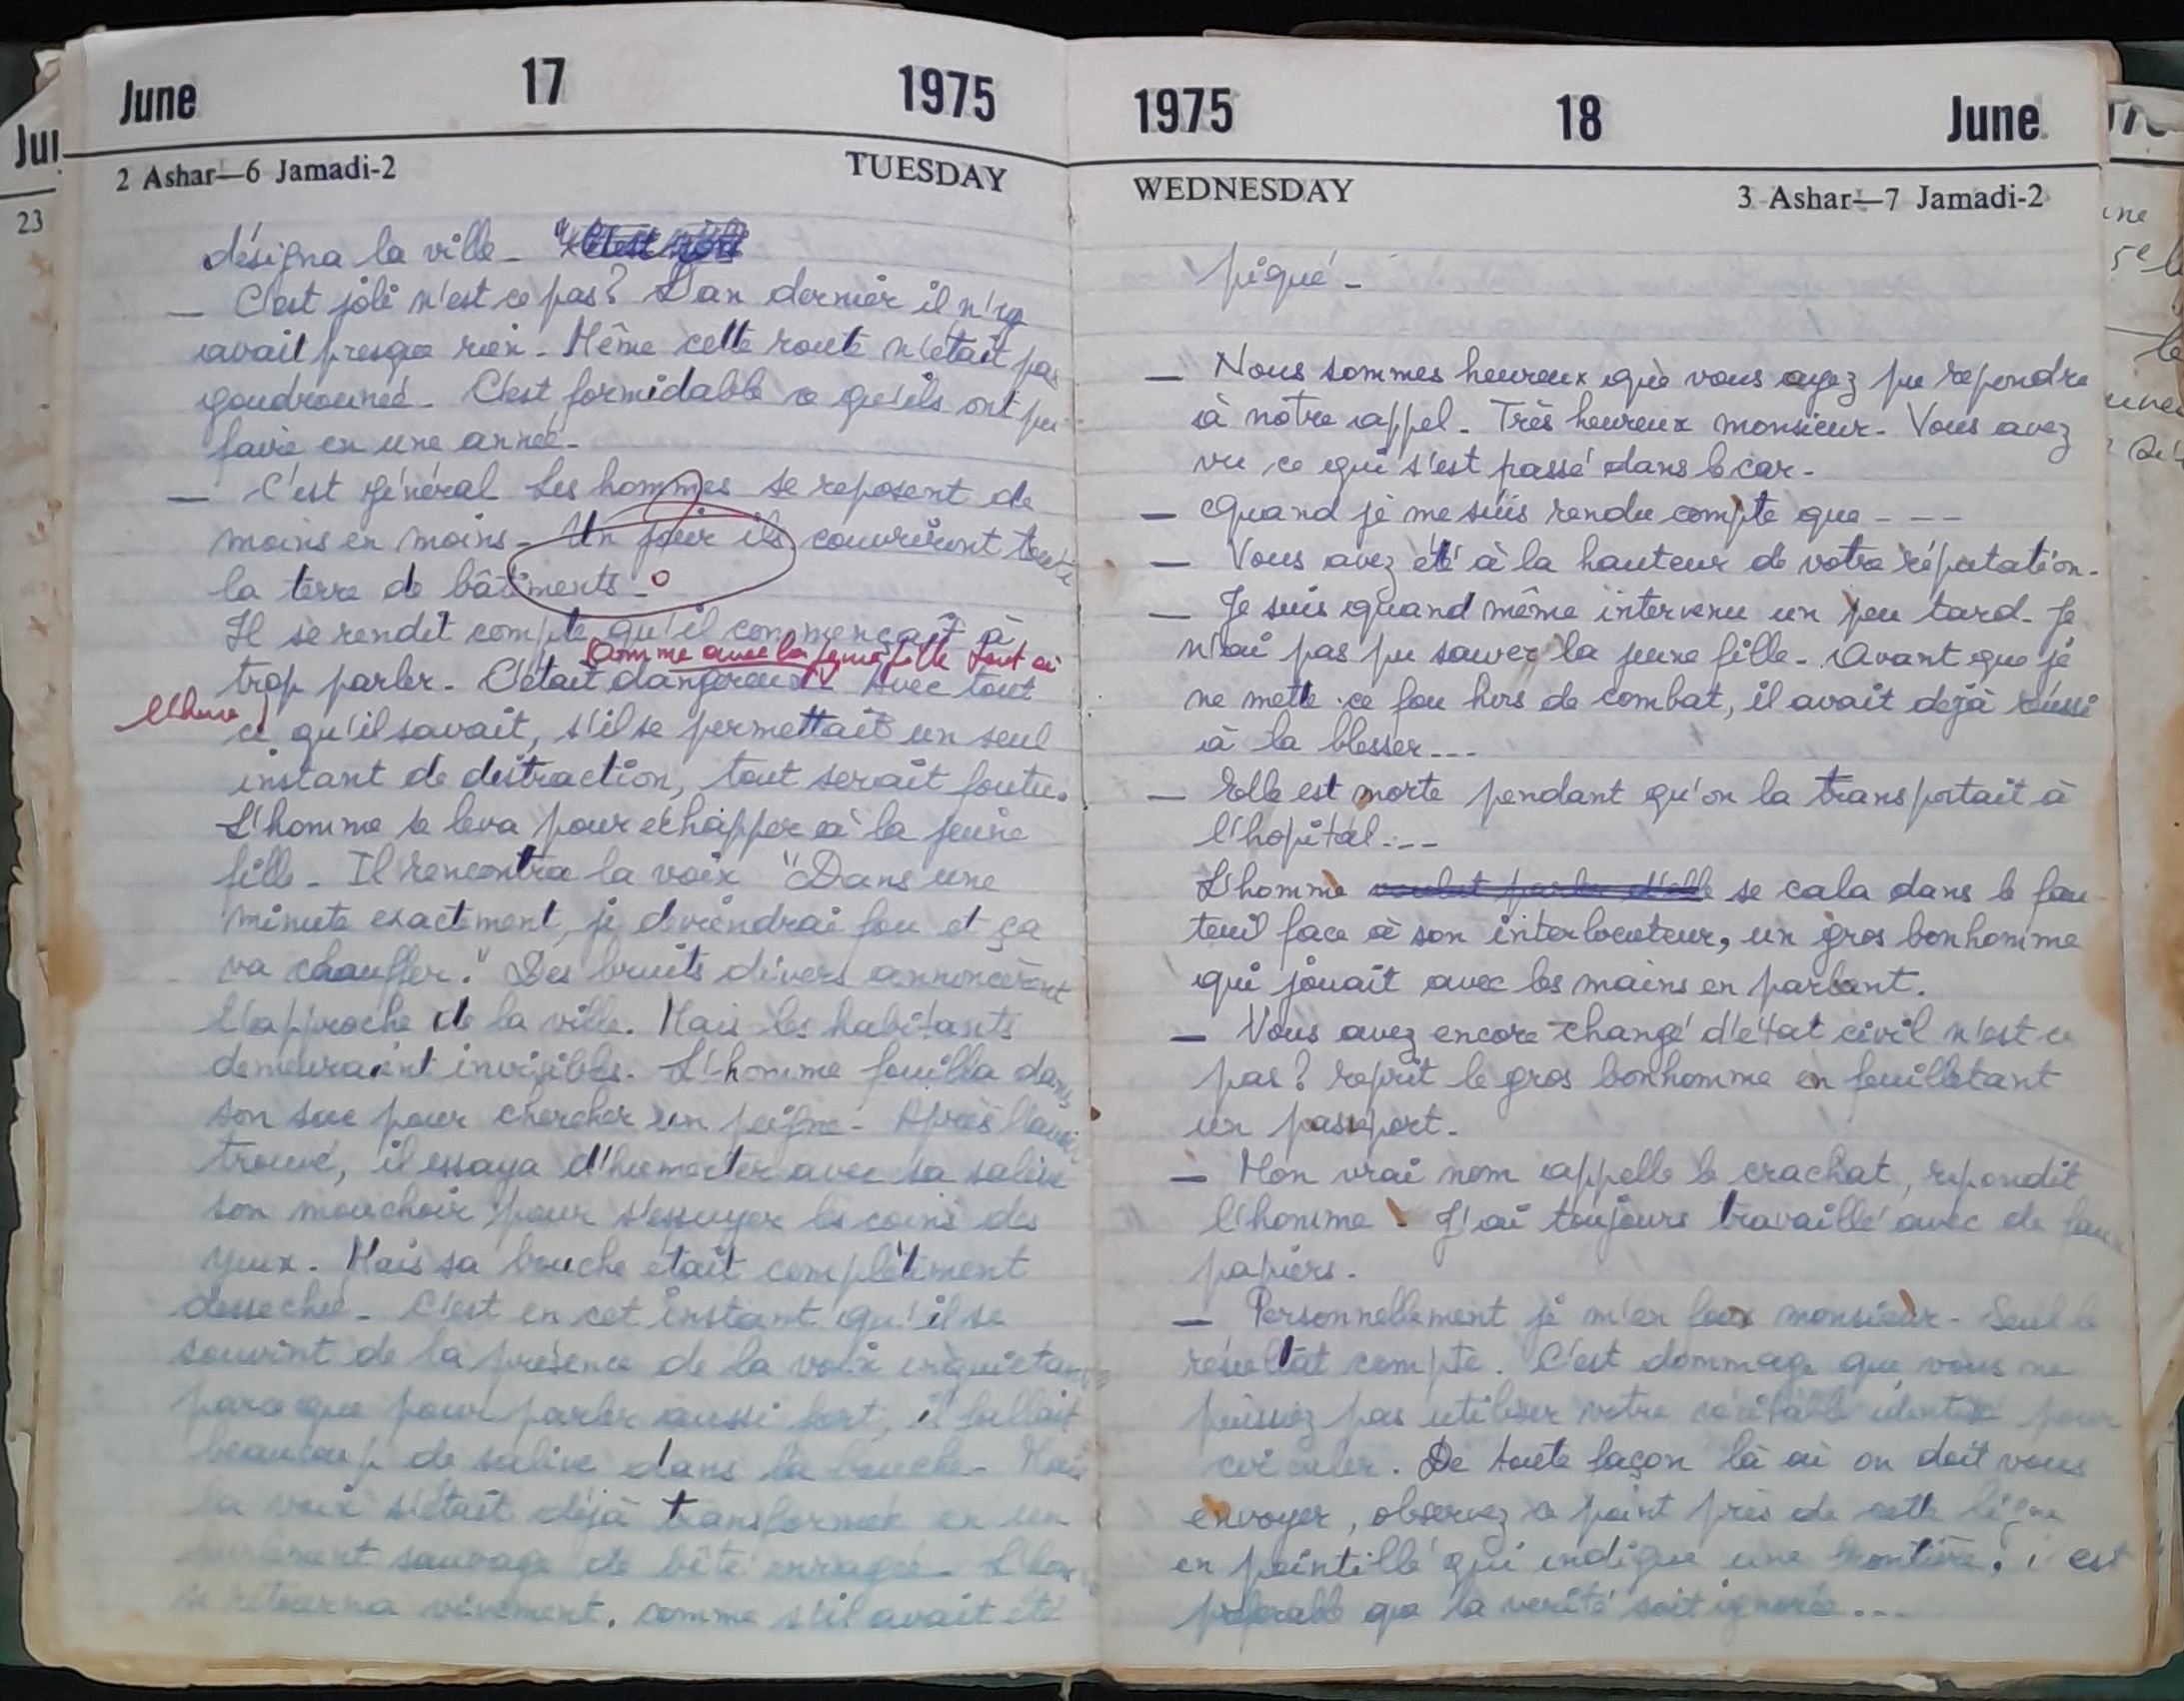 June 17 1975
2 Ashar—6 Jamadi-2 TUESDAY
désigna la ville_
_ C'est joli n'est ce pas? L'an dernier il n'y
avait presque rien_ Même cette route n'était pas
goudronnée_ C'est formidable ce qu'ils ont pu
faire en une année_
_ C'est général Les hommes se reposent de
moins en moins_ Un jour ils couvriront toute
la terre de bâtiments_
Il se rendit compte qu'il commençait à
comme avec la jeune fille tout à
trop parler_ C'était dangereux. Avec tout
l'heure
ce qu'il savait, s'il se permettait un seul
instant de distraction, tout serait foutu.
L'homme se leva pour échapper à la jeune
fille_ Il rencontra la voix "Dans une
minute exactement, je deviendrai fou et ça
va chauffer." Des bruits divers annoncèrent
l'approche de la ville. Mais les habitants
demeuraient invisibles. L'homme fouilla dans
son sac pour chercher un peigne_ Après l'avoir
trouvé, il essaya d'humecter avec sa salive
son mouchoir pour s'essuyer les coins des
yeux. Mais sa bouche était complètement
desseché_ C'est en cet instant qu'il se
souvint de la présence de la voix inquiétante
parce que pour parler aussi fort, il fallait
beaucoup de salive dans la bouche_ Mais
la voix s'était déjà transformée en un
hurlement sauvage de bête enragée_ L'homme
se retourna vivement, comme s'il avait été
1975 18 June
WEDNESDAY 3 Ashar—7 Jamadi-2
piqué_
_ Nous sommes heureux que vous ayez pu repondre
à notre appel_ Très heureux monsieur_ Vous avez
vu ce qui s'est passé dans le car_
_ Quand je me suis rendu compte que _ _ _
_ Vous avez été à la hauteur de votre réputation_
_ Je suis quand même intervenu un peu tard_ Je
n'ai pas pu sauver la jeune fille_ Avant que je
ne mette ce fou hors de combat, il avait dejà réussi
à la blesser _ _ _
_ Elle est morte pendant qu'on la transportait à
l'hopital _ _ _
L'homme voulut parler d'elle se cala dans le fau-
teuil face à son interlocuteur, un gros bonhomme
qui jouait avec les mains en parlant.
_ Vous avez encore changé d'état civil n'est ce
pas? reprit le gros bonhomme en feuilletant
un passeport_
_ Mon vrai nom appelle le crachat, répondit
l'homme. J'ai toujours travaillé avec de faux
papiers.
_ Personnellement je m'en fous monsieur_ Seul le
résultat compte. C'est dommage que vous ne
puissiez pas utiliser votre véritable identité pour
circuler. De toute façon là où on doit vous
envoyer, observez ce point près de cette ligne
en pointillé qui indique une frontière, i est
préférable que la verité soit ignorée _ _ _
Jui
23